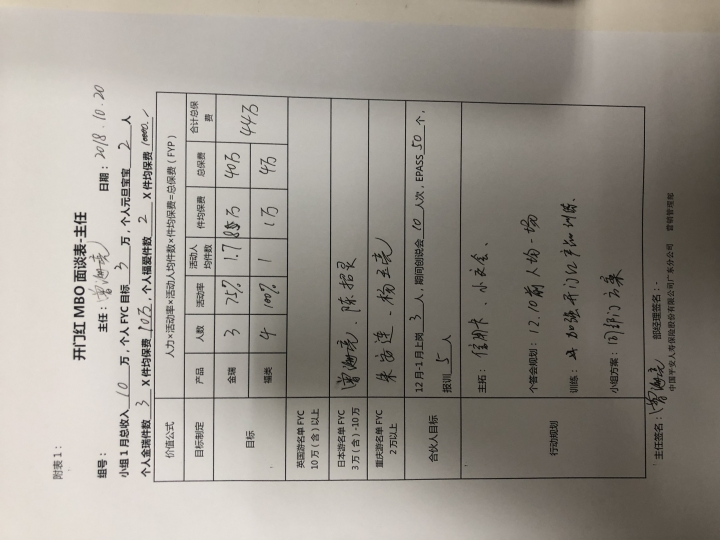 附表 1：
开门红 MBO 面谈表-主任
组号： 主任：曾瀚亮 日期：2018.10.20
小组 1 月总收入 10 万，个人 FYC 目标 3 万，个人元旦宝宝 2 人
个人金瑞件数 3 X 件均保费 10万，个人福爱件数 2 X 件均保费 10000.
价值公式 人力×活动率×活动人均件数×件均保费=总保费（FYP）
目标制定 产品 人数 活动率 活动人均件数 件均保费 总保费 合计总保费
目标 金瑞 3 75% 1.7 万 40万 44万
福类 4 100% 1 1万 4万
英国游名单 FYC 10 万（含）以上
日本游名单 FYC 3 万（含）-10 万 曾瀚亮、陈招灵
重庆游名单 FYC 2 万以上
合伙人目标 12 月-1 月上岗 3 人，期间创说会 10 人次，EPASS 50 个，
报训 5 人
行动规划 主拓：信用卡、小交会、
个答会规划：12.10前人均一场
训练：加强开门红产品训练.
小组方案：同部门方案
主任签名：曾瀚亮 部经理签名：
中国平安人寿保险股份有限公司广东分公司 营销管理部